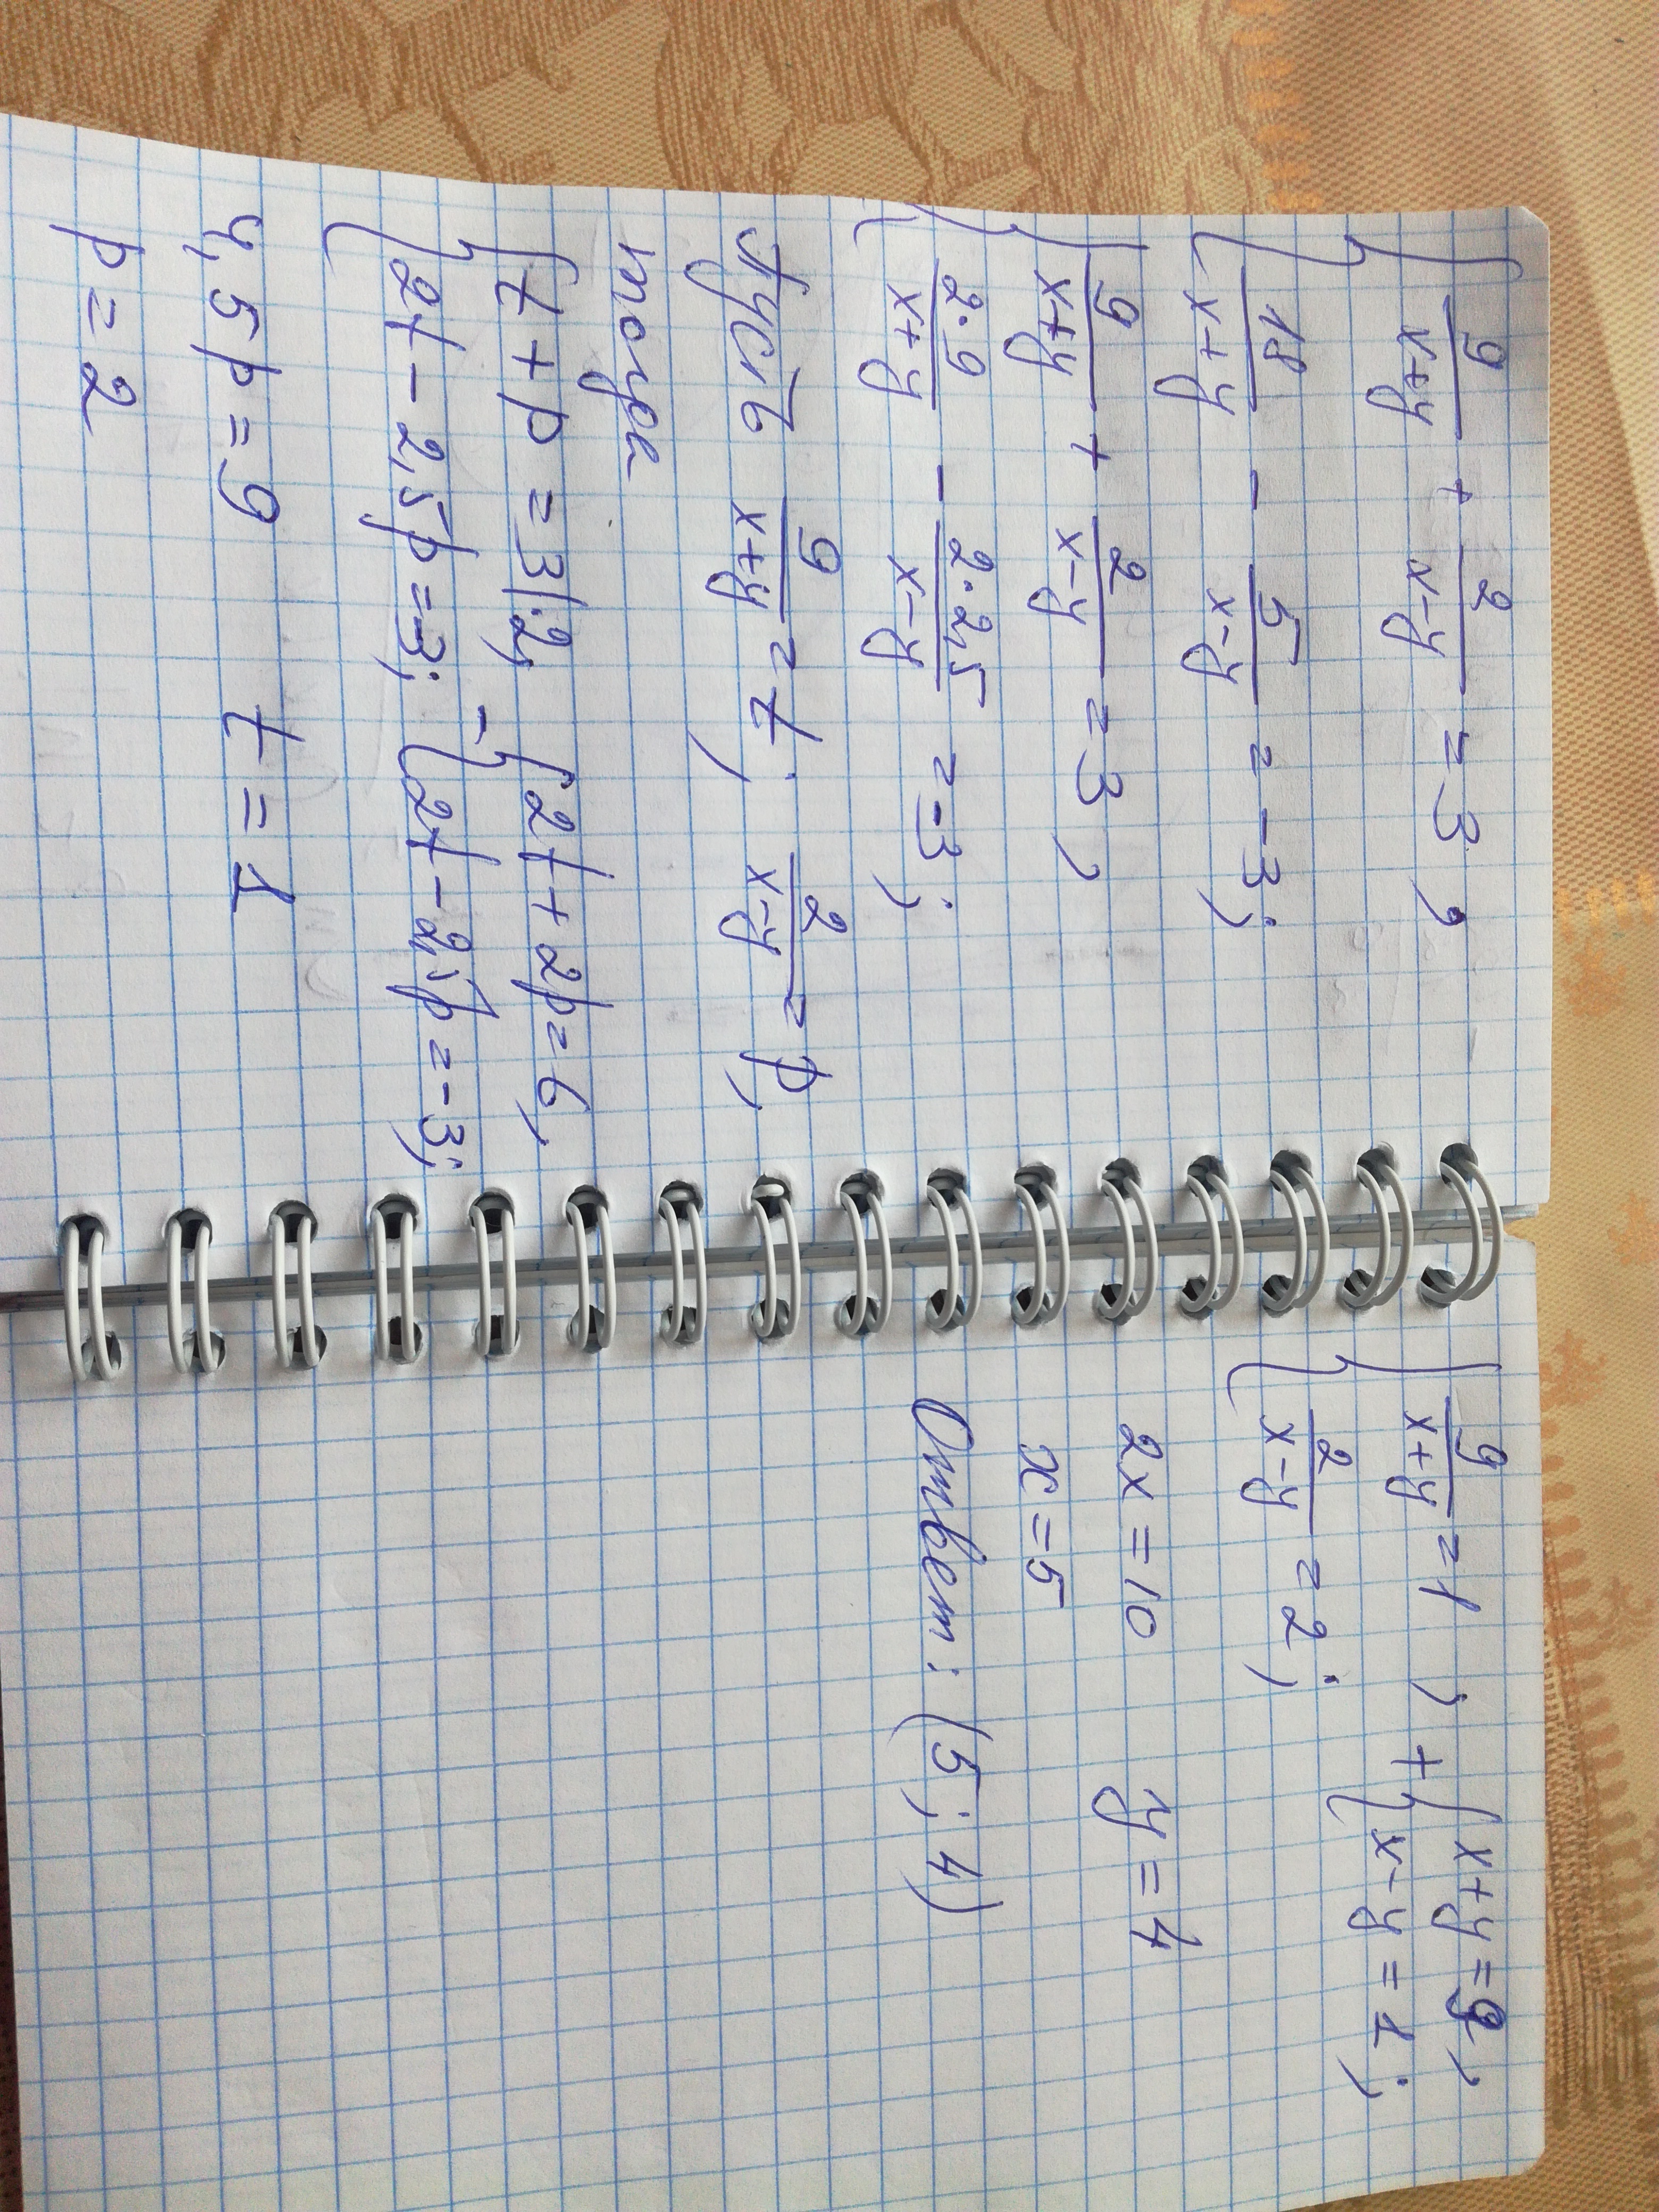 { 9/(x+y) + 2/(x-y) = 3,
{ 18/(x+y) - 5/(x-y) = -3;
{ 9/(x+y) + 2/(x-y) = 3,
{ 2·9/(x+y) - 2·2,5/(x-y) = -3;
Пусть 9/(x+y) = t, 2/(x-y) = p,
тогда
{ t + p = 3 |·2, - { 2t + 2p = 6,
{ 2t - 2,5p = -3; { 2t - 2,5p = -3;
4,5p = 9 t = 1
p = 2
{ 9/(x+y) = 1, + { x+y = 9,
{ 2/(x-y) = 2; { x-y = 1;
2x = 10 y = 4
x = 5
Ответ: (5; 4)